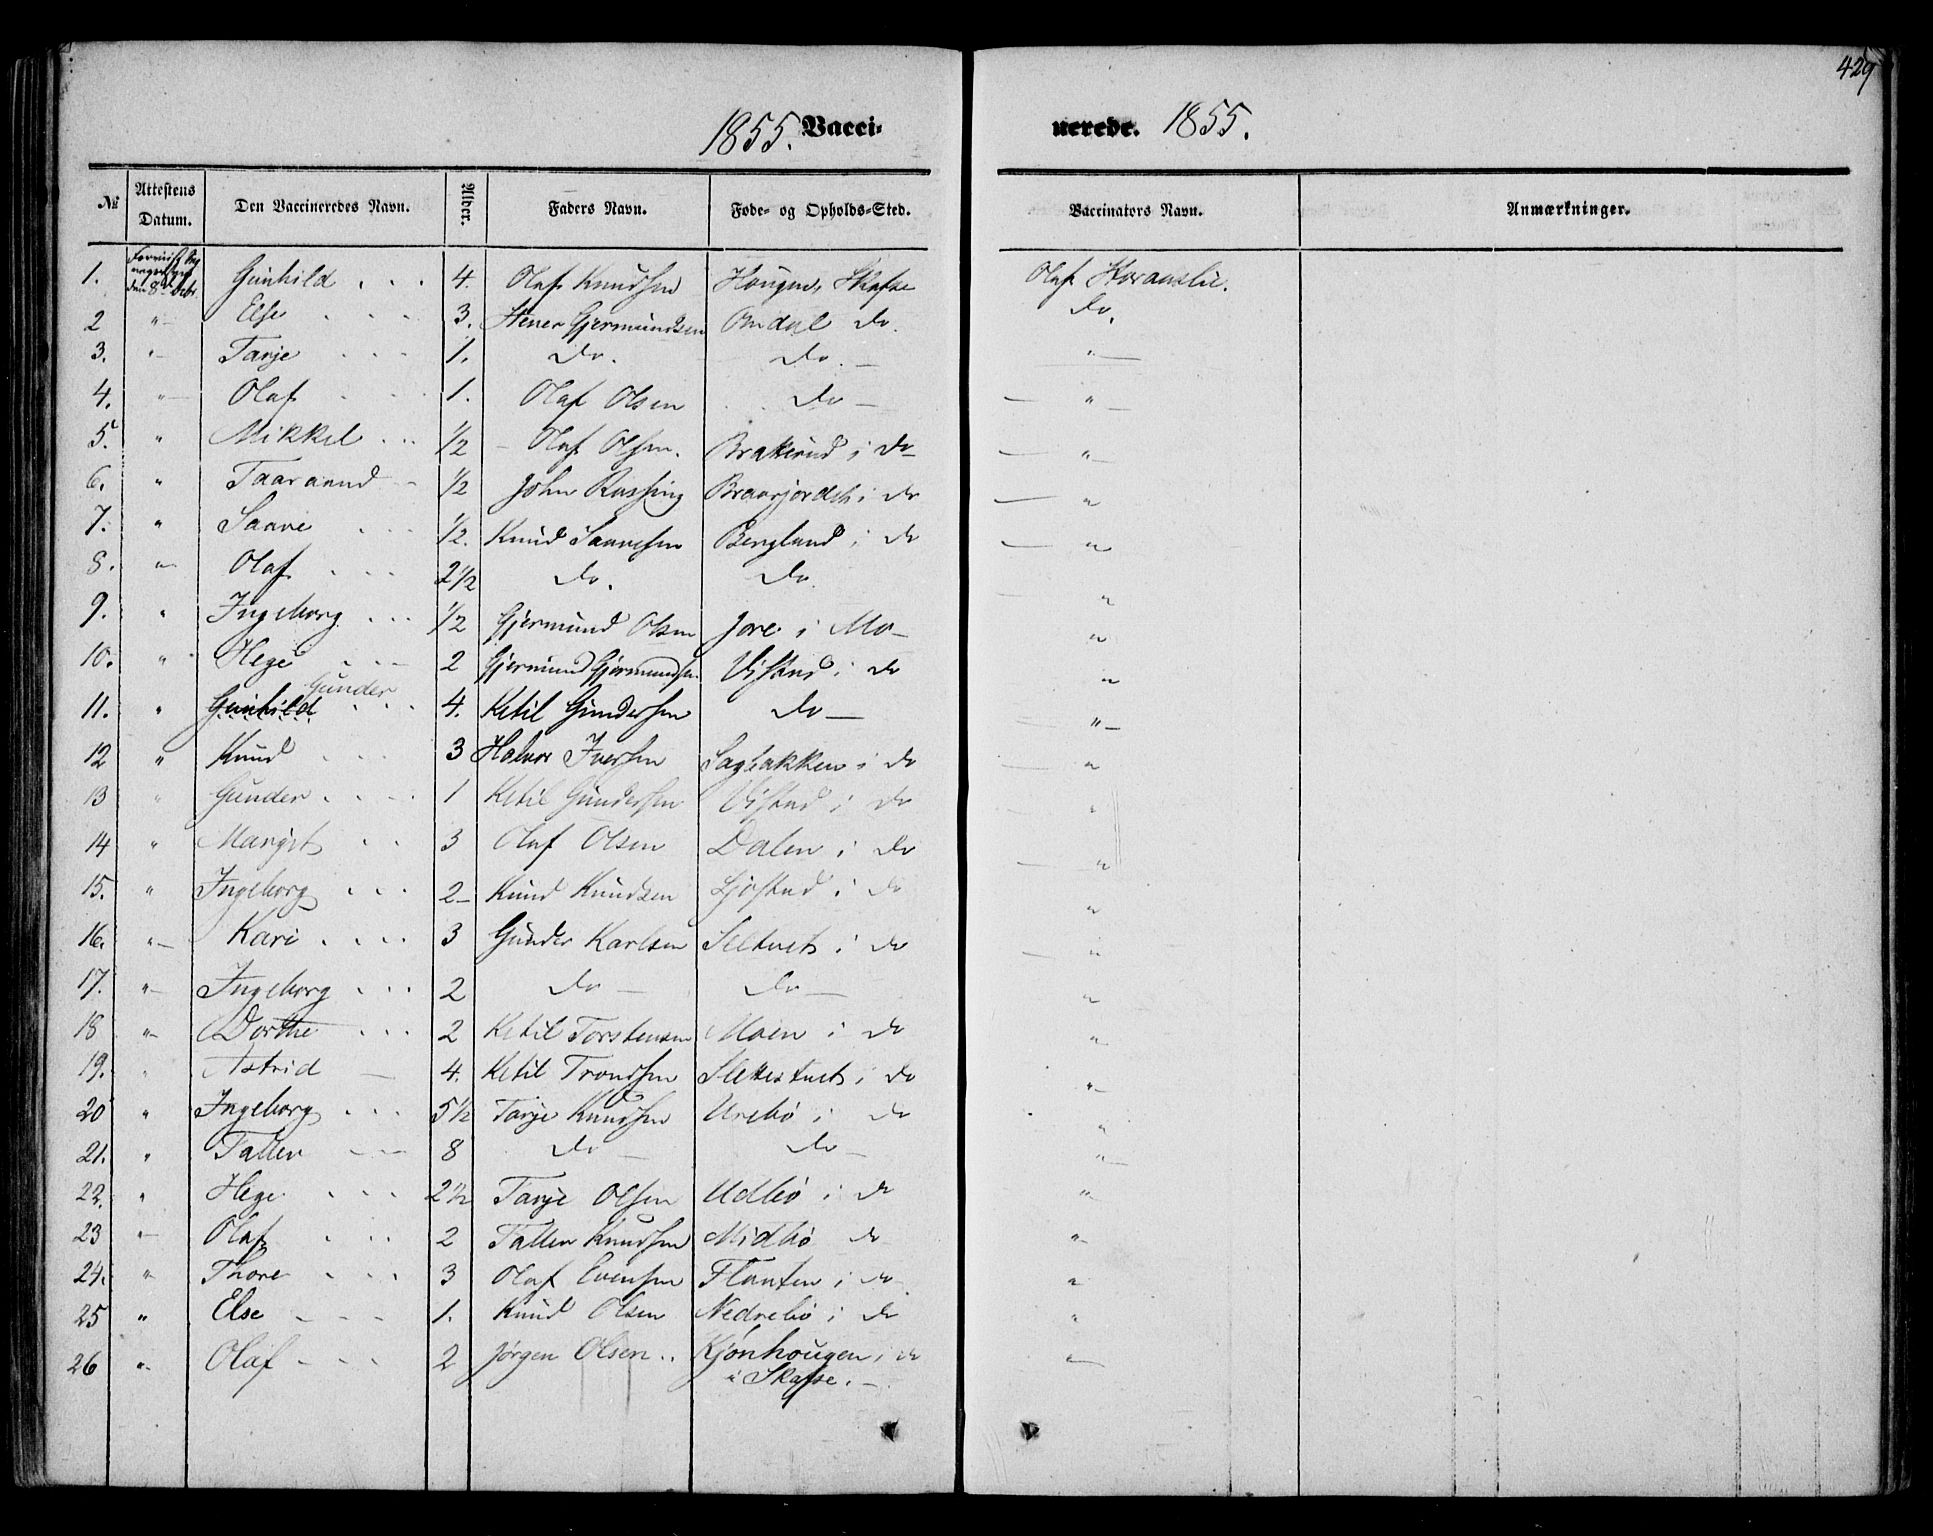 429
1855. Vacci-
nerede. 1855.
№ Attestens Datum. Den Vaccineredes Navn. Alder. Faders Navn. Føde- og Opholds-Sted. Vaccinators Navn. Anmærkninger.
1. den 8de Gunhild . . . 4. Olaf Knudsen Hougen, Skafse Olaf
2 "- Else . . . 3. Gjermundsen do. do.
3. "- Tarje . . . 1. do. do. - "-
4. "- Olaf . . . 1. Olaf Olsen do - "-
5. " Mikkel . . . 1/2 - Olaf Olsen. Brakerud i do - "-
6. " Taaraand - 1/2 John i do "
7. " Saave . . . 1/2. Knud Saavesen Bergland i do "
8. "- Olaf . . . 2 1/2 do. do. "
9. " Ingeborg . . . 1/2 Gjermund Olsen Jore i Mo- "
10. " Hege . . - 2 Gjermund Gjermundsen Vistad i do "
Gunder
11. " Gunhild . . . 4. Ketil Gundersen do - "-
12 " Knud . . . 3 Halvor Iversen Sagbakken i do "
13 " Gunder . . . 1 Ketil Gundersen Vistad i do "
14 " Margit . . 3 Olaf Olsen Dalen i do "
15. " Ingeborg . . . 2- Knud Knudsen Ljostad i do "
16. "- Kari . . . . 3 Gunder Karlsen Seltveit i do "
17. "- Ingeborg . . . 2 do - do - "
18 "- Dorthe . . . 2 Ketil Torstensen Moen i do "
19. " Astrid - 4. Ketil Trondsen Slettestveit i do "-
20 " Ingeborg . . . 5 1/2 Tarje Knudsen Urebø i do "
21. " Tallev - - - 8 do - do - "-
22. " Hege . . . 2 1/2 Tarje Olsen Udbø i do "
23 "- Olaf . . . 2 Tallev Knudsen Midbø do "-
24. "- Thore . . . 3 Olaf Evensen Flauten i do "
25 " Else - - - 1. Knud Olsen Nedrebø i do "
26 "- Olaf - - - 2 Jørgen Olsen . . Kjønhougen i do "-
i Skafse. -